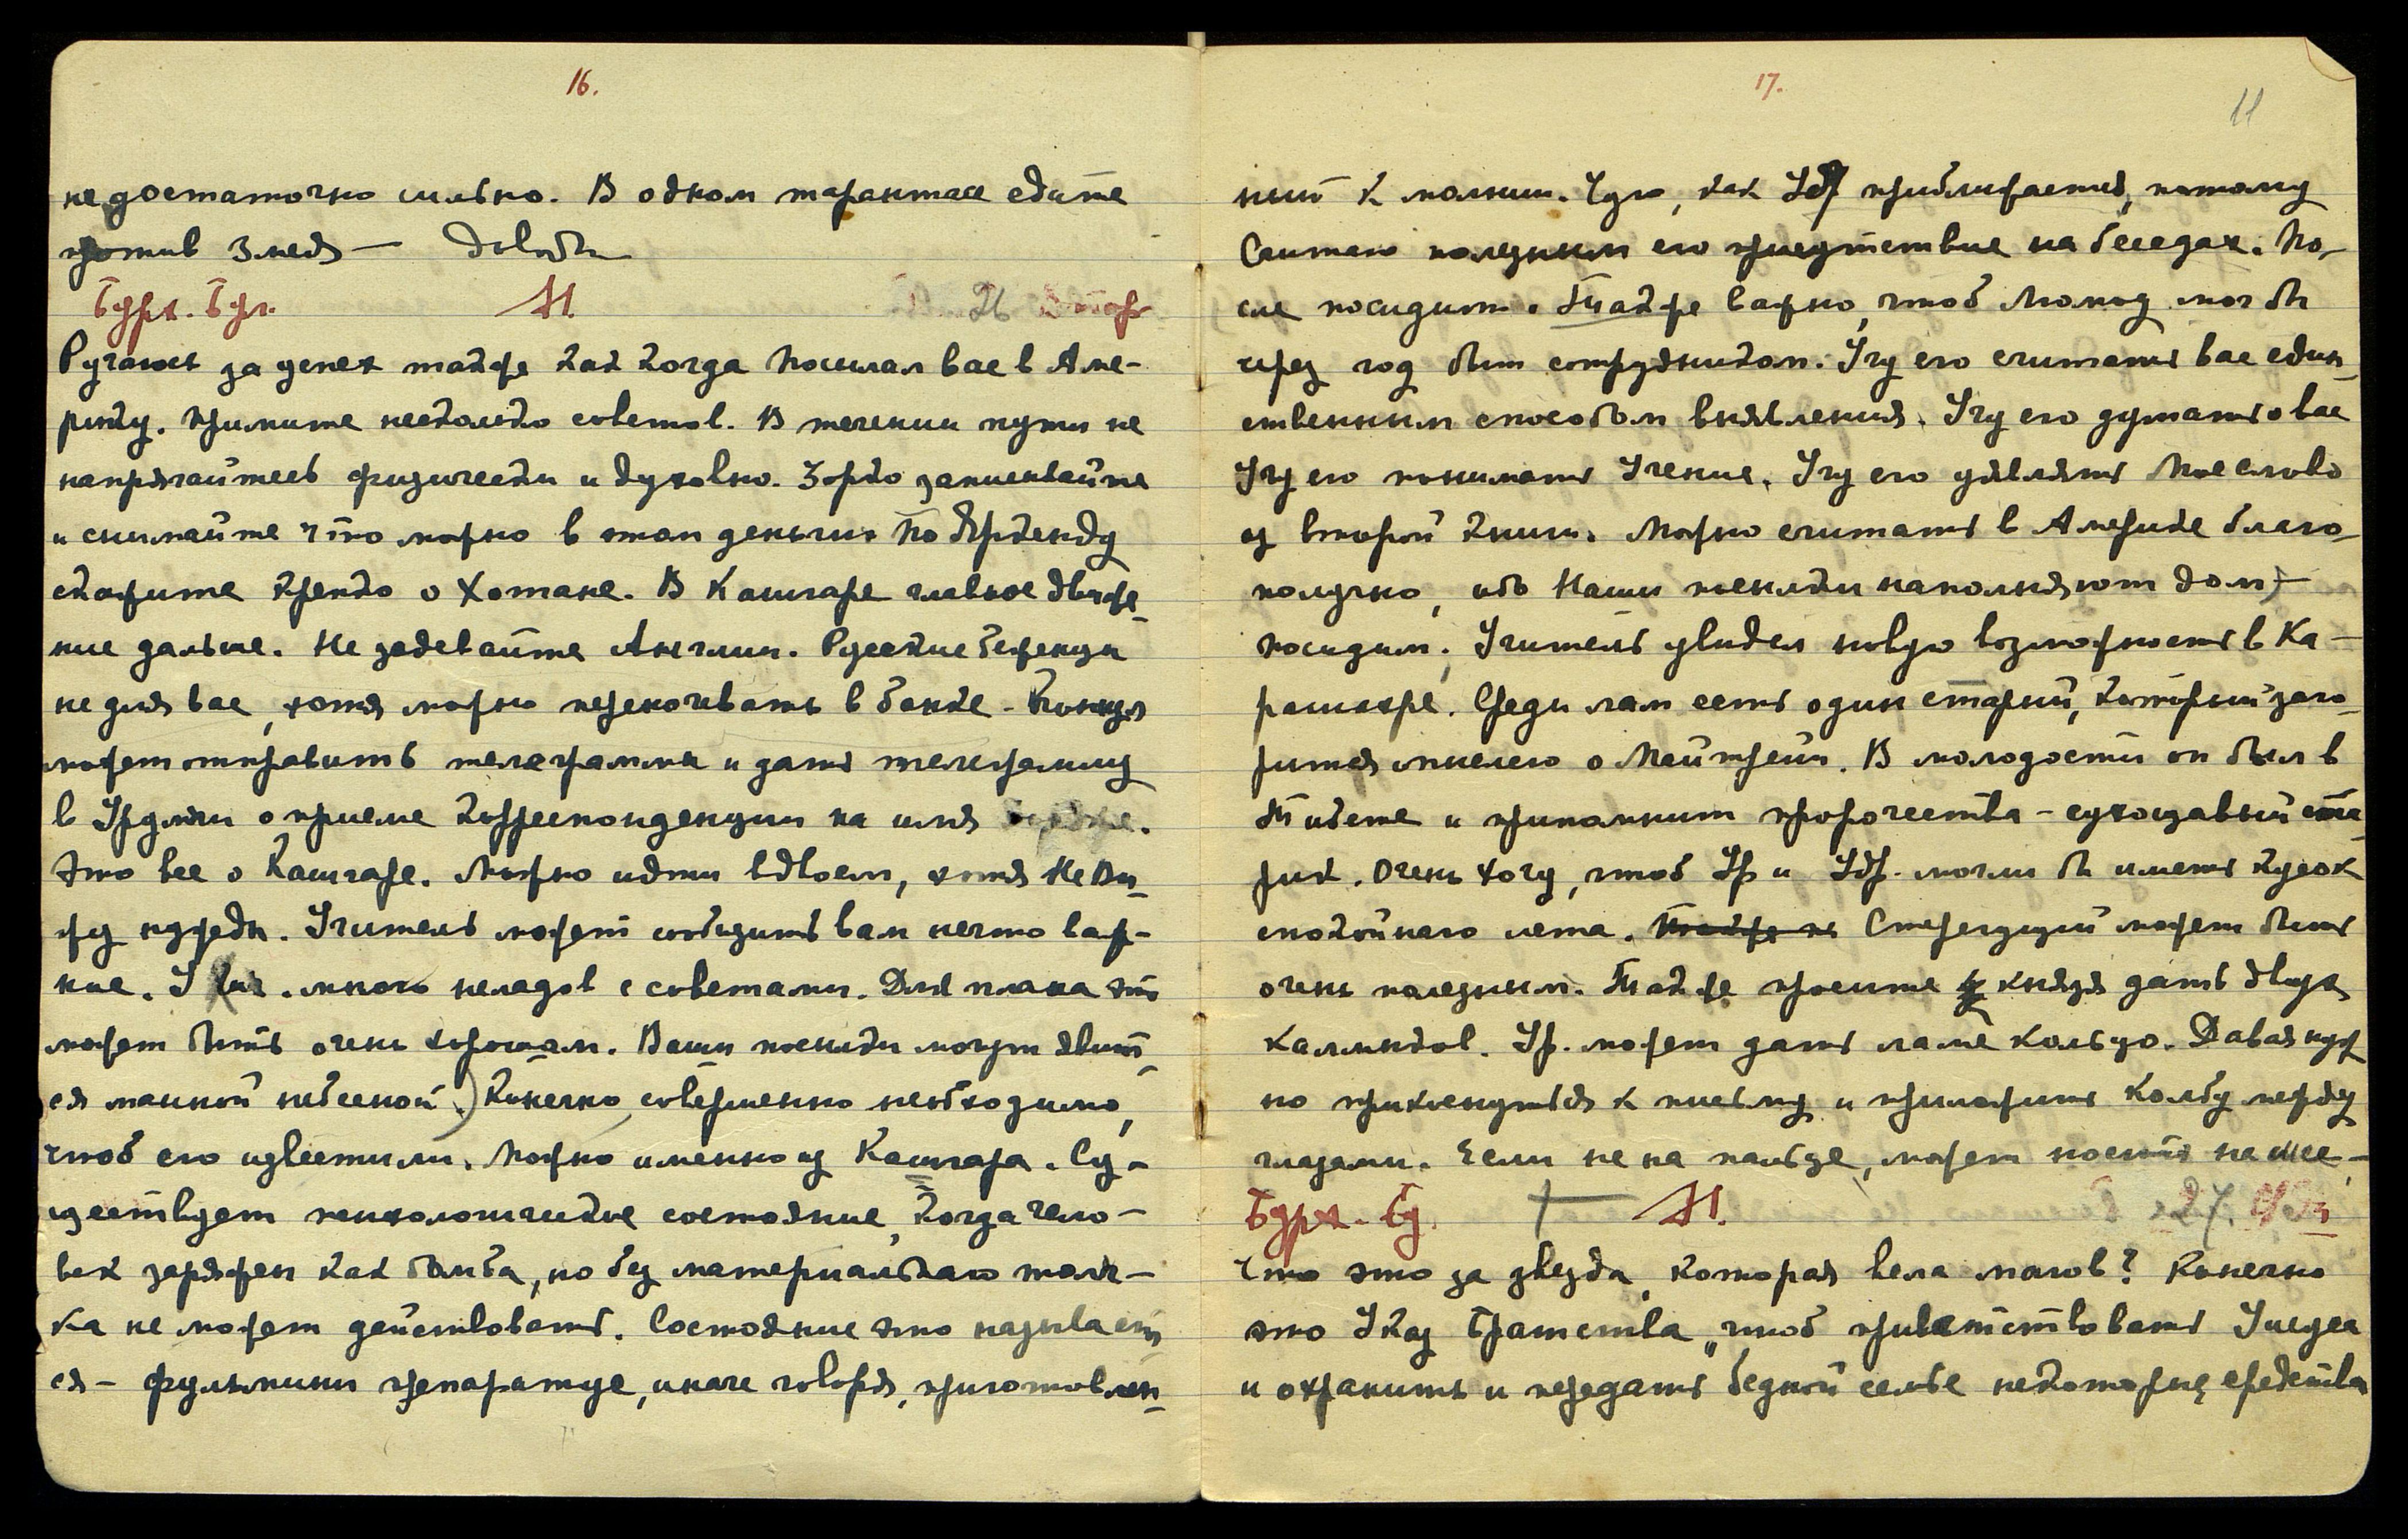 16.
недостаточно сильно. В одном тарантасе едите
против Змея — довольно
Бурх. Бул. М. 26
Ручаюсь за успех также как когда посылал вас в Аме-
рику. Примите несколько советов. В течении пути не
напрягайтесь физически и духовно. Зорко записывайте
и снимайте что можно в этом
скажите кратко о Хотане. В Кашгаре главное движе-
ние дальше. Не задевайте Англии. Русские беженцы
не для вас, хотя можно переночевать в банке. Консул
может отправить телеграммы и дать телеграмму
в Урумчи о приеме корреспонденции на имя
Это все о Кашгаре. Можно идти вдвоем, хотя не ви-
жу нужды. Учитель может сообщить вам нечто важ-
ное. У них много неладов с советами. Для плана это
может быть очень хорошим. Ваши посылки могут явит-
ся манной небесной.) Конечно совершенно необходимо,
чтоб его известили. Можно именно из Кашгара. Су-
ществует психологическое состояние, когда чело-
век заряжен как бомба, но без материального толч-
ка не может действовать. Состояние это называет-
ся — фульмини препаратус, иначе говоря, приготовлен-
17.
11
ный к молнии. Чую, как Удр приближается, потому
Считаю полезным его присутствие на беседах. По-
сле посидим. Также важно, чтоб Молод. мог бы
через год быть сотрудником. Учу его считать вас един-
ственным способом выявления. Учу его думать о вас
Учу его понимать Учение. Учу его уявлять Мое слово
из второй книги. Можно считать в Америке благо-
получно, ибо Наши посылки наполняют дом) —
посидим. Учитель увидел новую возможность в Ка-
рашаре. Среди лам есть один старый, который заго-
рится мыслею о Майтрейи. В молодости он был в
Тибете и припомнит пророчества — сухощавый ста-
рик. Очень хочу, чтоб Ур и Удр. могли бы иметь кусок
спокойного лета. Также не Стерегущий может быть
очень полезным. Также просите у князя дать двух
калмыков. Ур. может дать ламе кольцо. Давая нуж
но прикоснуться к письму и приложить Колбу между
глазами. Если не на пальце, может носить на шее —
Бурх. Бу. † — М. 27.
Что это за звезда, которая вела магов? Конечно
это Указ Братства, чтоб приветствовать Иисуса
и охранить и передать бедной семье некоторые средства